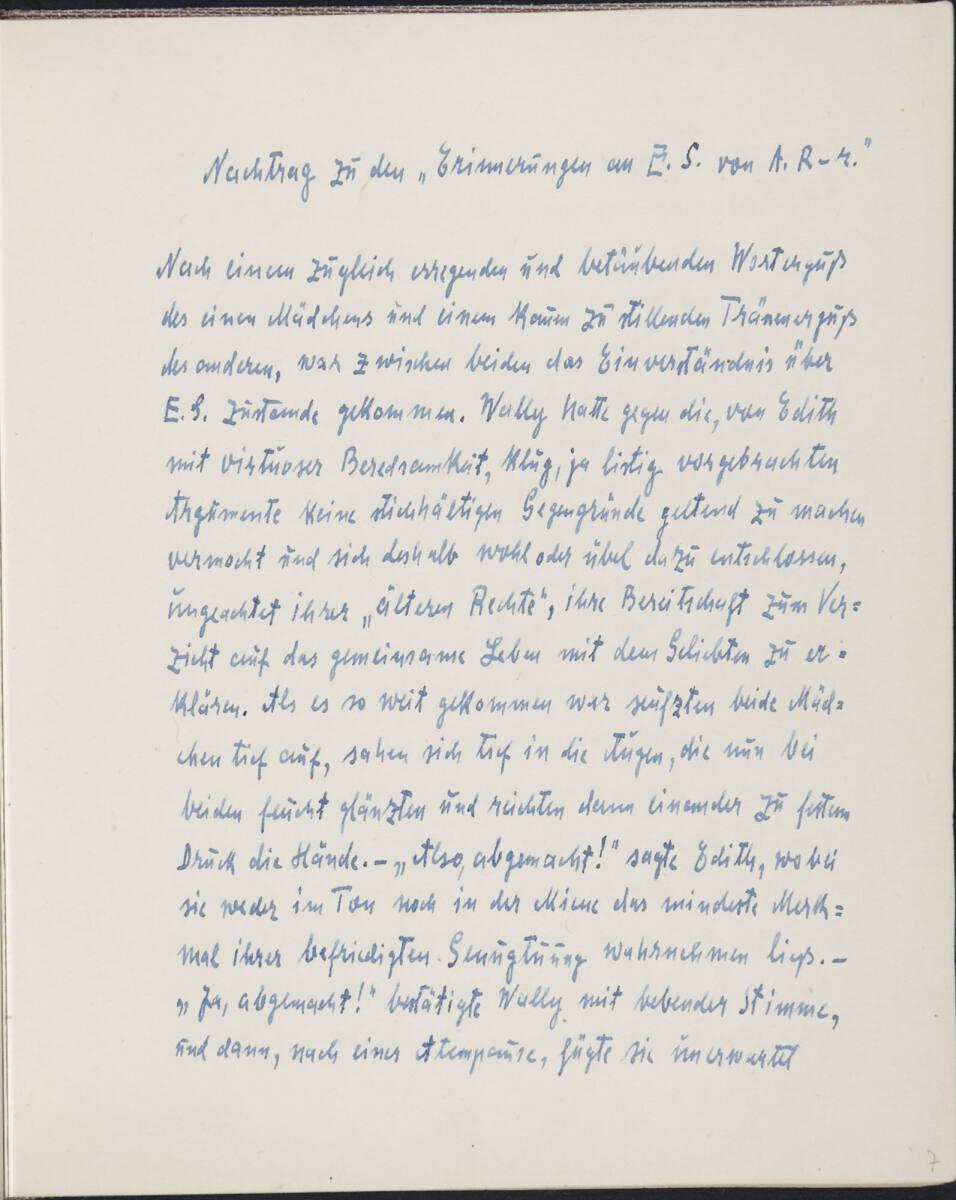 Nachtrag zu den „Erinnerungen an E. S. von A. R–r."
Nach einem zugleich erregenden und betäubenden Worterguß
des einen Mädchens und einem kaum zu stillenden Tränenerguß
des anderen, war zwischen beiden das Einverständnis über
E. S. zustande gekommen. Wally hatte gegen die, von Edith
mit virtuoser Beredsamkeit, klug, ja listig vorgebrachten
Argumente keine stichhältigen Gegengründe geltend zu machen
vermocht und sich deshalb wohl oder übel dazu entschlossen,
ungeachtet ihrer „älteren Rechte", ihre Bereitschaft zum Ver=
zicht auf das gemeinsame Leben mit dem Geliebten zu er=
klären. Als es so weit gekommen war seufzten beide Mäd=
chen tief auf, sahen sich tief in die Augen, die nun bei
beiden feucht glänzten und reichten dann einander zu festem
Druck die Hände. – „Also, abgemacht!" sagte Edith, wobei
sie weder im Ton noch in der Miene das mindeste Merk=
mal ihrer befriedigten Genugtuung wahrnehmen ließ. –
„Ja, abgemacht!" bestätigte Wally mit bebender Stimme,
und dann, nach einer Atempause, fügte sie unerwartet
7